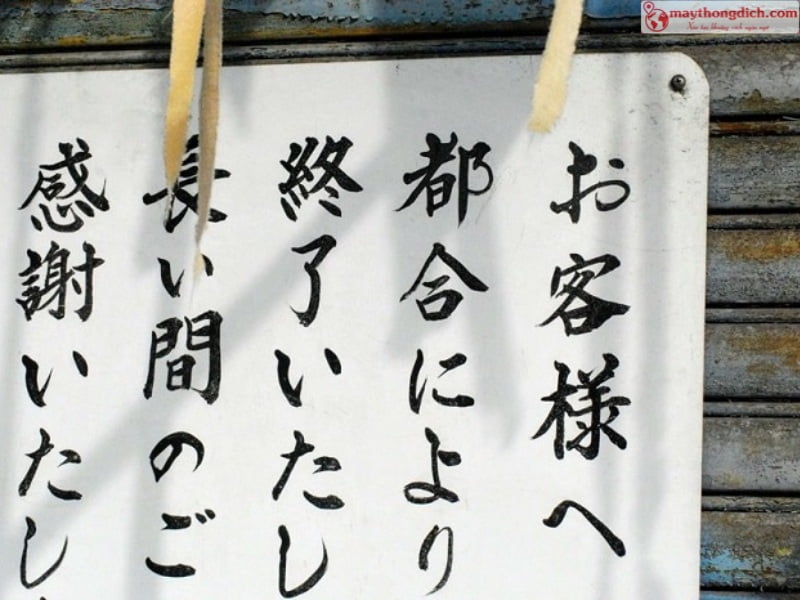 お客様へ
都合により
終了いたし
長い間のご
感謝いたし
maythongdich.com